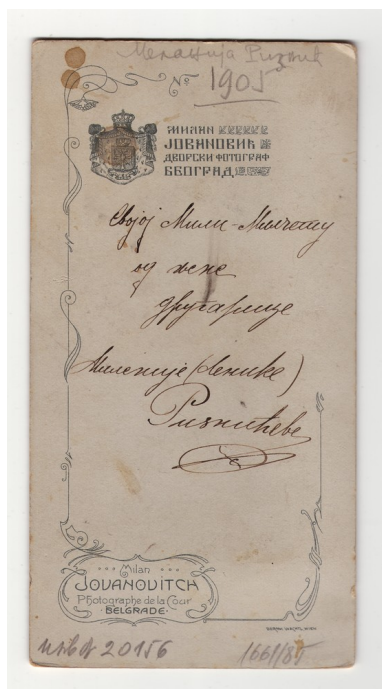 Меланија Ризнић
№ 1905
МИЛАН
ЈОВАНОВИЋ
ДВОРСКИ ФОТОГРАФ
БЕОГРАД
Својој Мили-Милчету
од њене
другарице
Миленије (Ленике)
Ризнићеве
Milan
JOVANOVITCH
Photographe de la Cour
BELGRADE
20156
1661/85